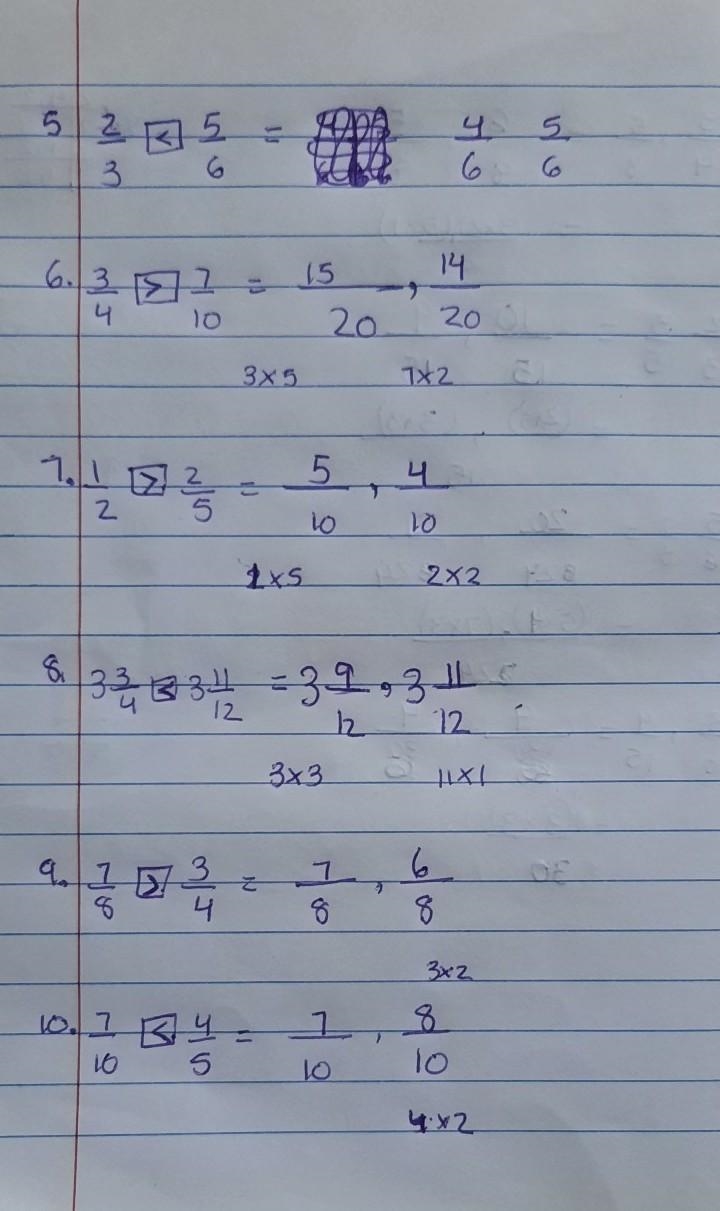 5 2/3 < 5/6 = 4/6 5/6
6. 3/4 > 7/10 = 15/20, 14/20
3×5 7×2
7. 1/2 > 2/5 = 5/10, 4/10
1×5 2×2
8. 3 3/4 < 3 11/12 = 3 9/12, 3 11/12
3×3 11×1
9. 7/8 > 3/4 = 7/8, 6/8
3×2
10. 7/10 < 4/5 = 7/10, 8/10
4×2